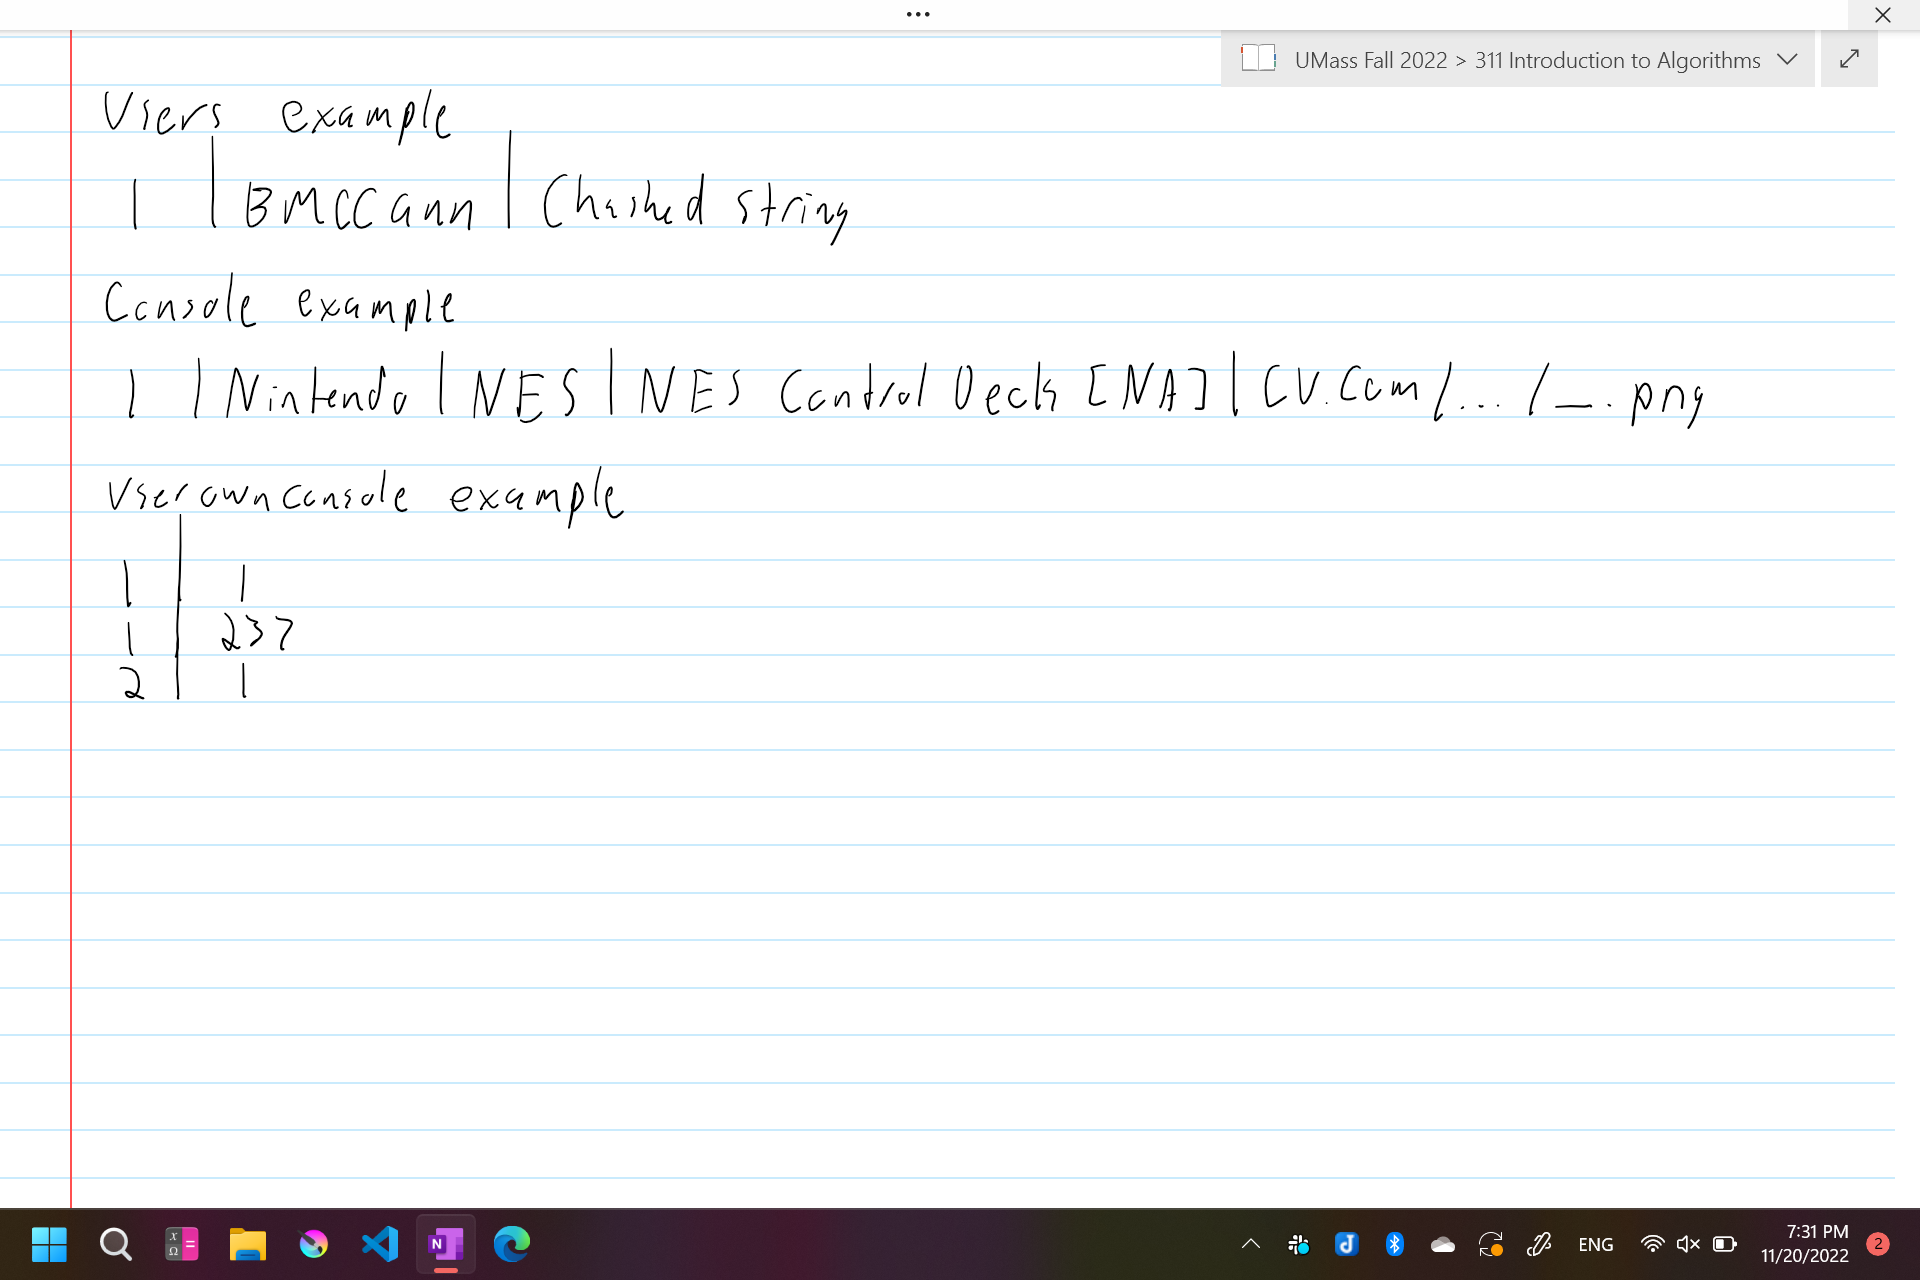 ...
UMass Fall 2022 > 311 Introduction to Algorithms
Users example
1 | BMCCann | Chashed string
Console example
1 | Nintendo | NES | NES Control Deck [NA] | CV.Com/.../_.png
Userownconsole example
1 | 1
1 | 237
2 | 1
ENG
7:31 PM
11/20/2022
2